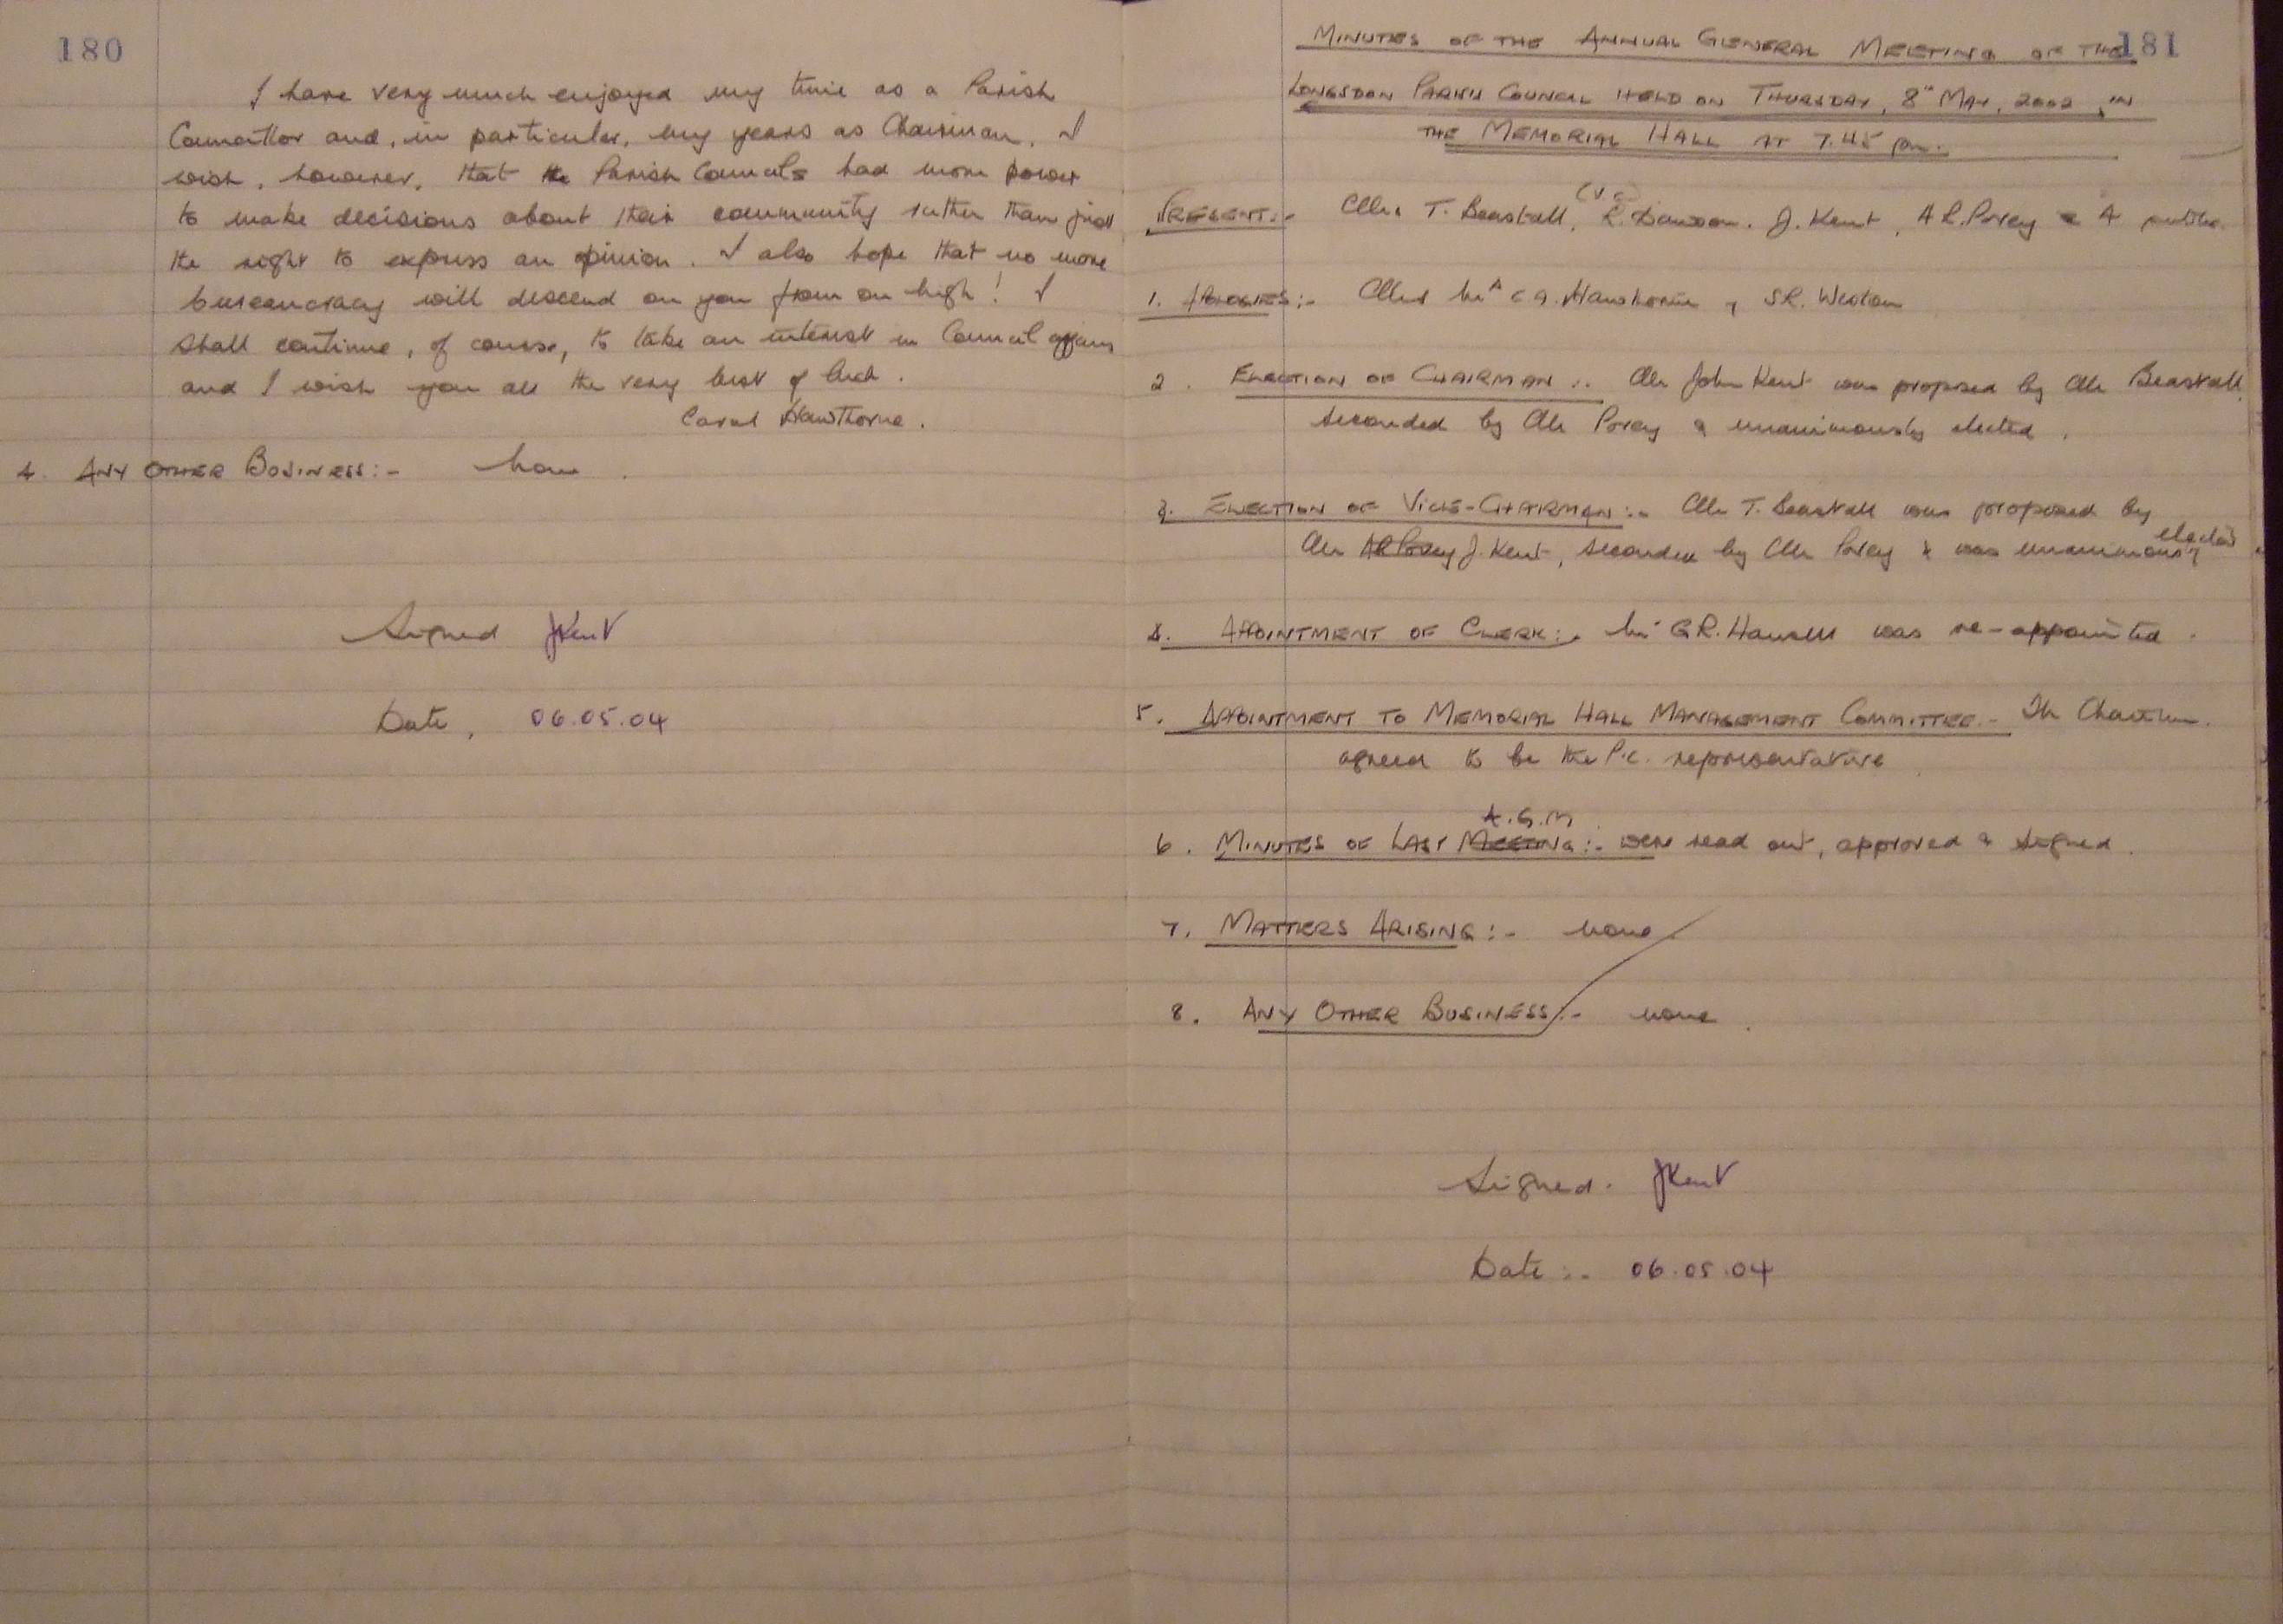 180
I have very much enjoyed my time as a Parish
Councillor and, in particular, my years as Chairman. I
wish, however, that the Parish Councils had more power
to make decisions about their community rather than just
the right to express an opinion. I also hope that no more
bureaucracy will descend on you from on high! I
shall continue, of course, to take an interest in Council affairs
and I wish you all the very best of luck.
Carol Hawthorne.
4. ANY OTHER BUSINESS:- None.
Signed JKent
Date, 06.05.04
181
MINUTES OF THE ANNUAL GENERAL MEETING OF THE
LONGSDON PARISH COUNCIL HELD ON THURSDAY, 8th MAY, 2002, IN
THE MEMORIAL HALL AT 7.45 pm.
PRESENT:- Cllrs T. Beastall, (VC) R. Dawson. J. Kent, A R. Povey & 4 public.
1. APOLOGIES:- Cllrs Mrs C A. Hawthorne, S R. Weston
2. ELECTION OF CHAIRMAN:- Cllr John Kent was proposed by Cllr Beastall,
seconded by Cllr Povey & unanimously elected.
3. ELECTION OF VICE-CHAIRMAN:- Cllr T. Beastall was proposed by
Cllr AR Povey J. Kent, seconded by Cllr Povey & was unanimously elected
4. APPOINTMENT OF CLERK:- Mr G R. was re-appointed.
5. APPOINTMENT TO MEMORIAL HALL MANAGEMENT COMMITTEE.- The Chairman.
agreed to be the P.C. representative
6. MINUTES OF LAST MEETING A.G.M:- were read out, approved & signed.
7. MATTERS ARISING:- None.
8. ANY OTHER BUSINESS:- none.
Signed. JKent
Date:- 06.05.04